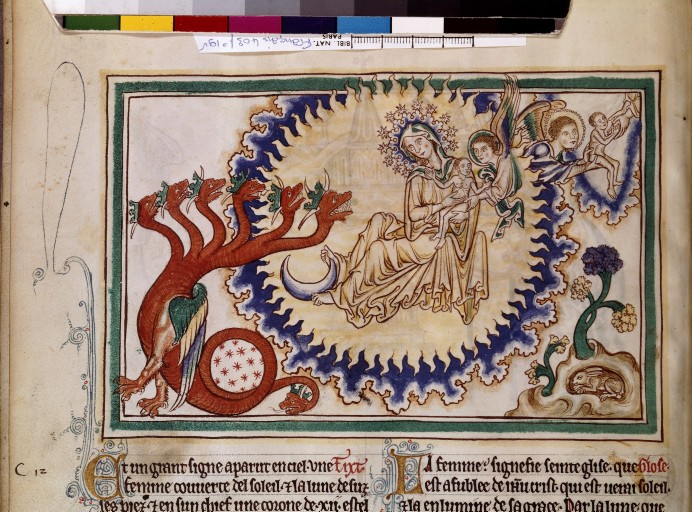 BIBL. NAT. PARIS
Français 403 fº 19v
C 12
Et un grant signe aparut en ciel. vne Tixt
femme couuerte del soleil. ⁊ la lune desuz
ses piez. ⁊ en sun chief une corone de .xij. estel
La femme signefie seinte glise. que Glose
est afublee de ihu crist. qui est uerai soleil.
⁊ la enlumine de sa grace. Par la lune que